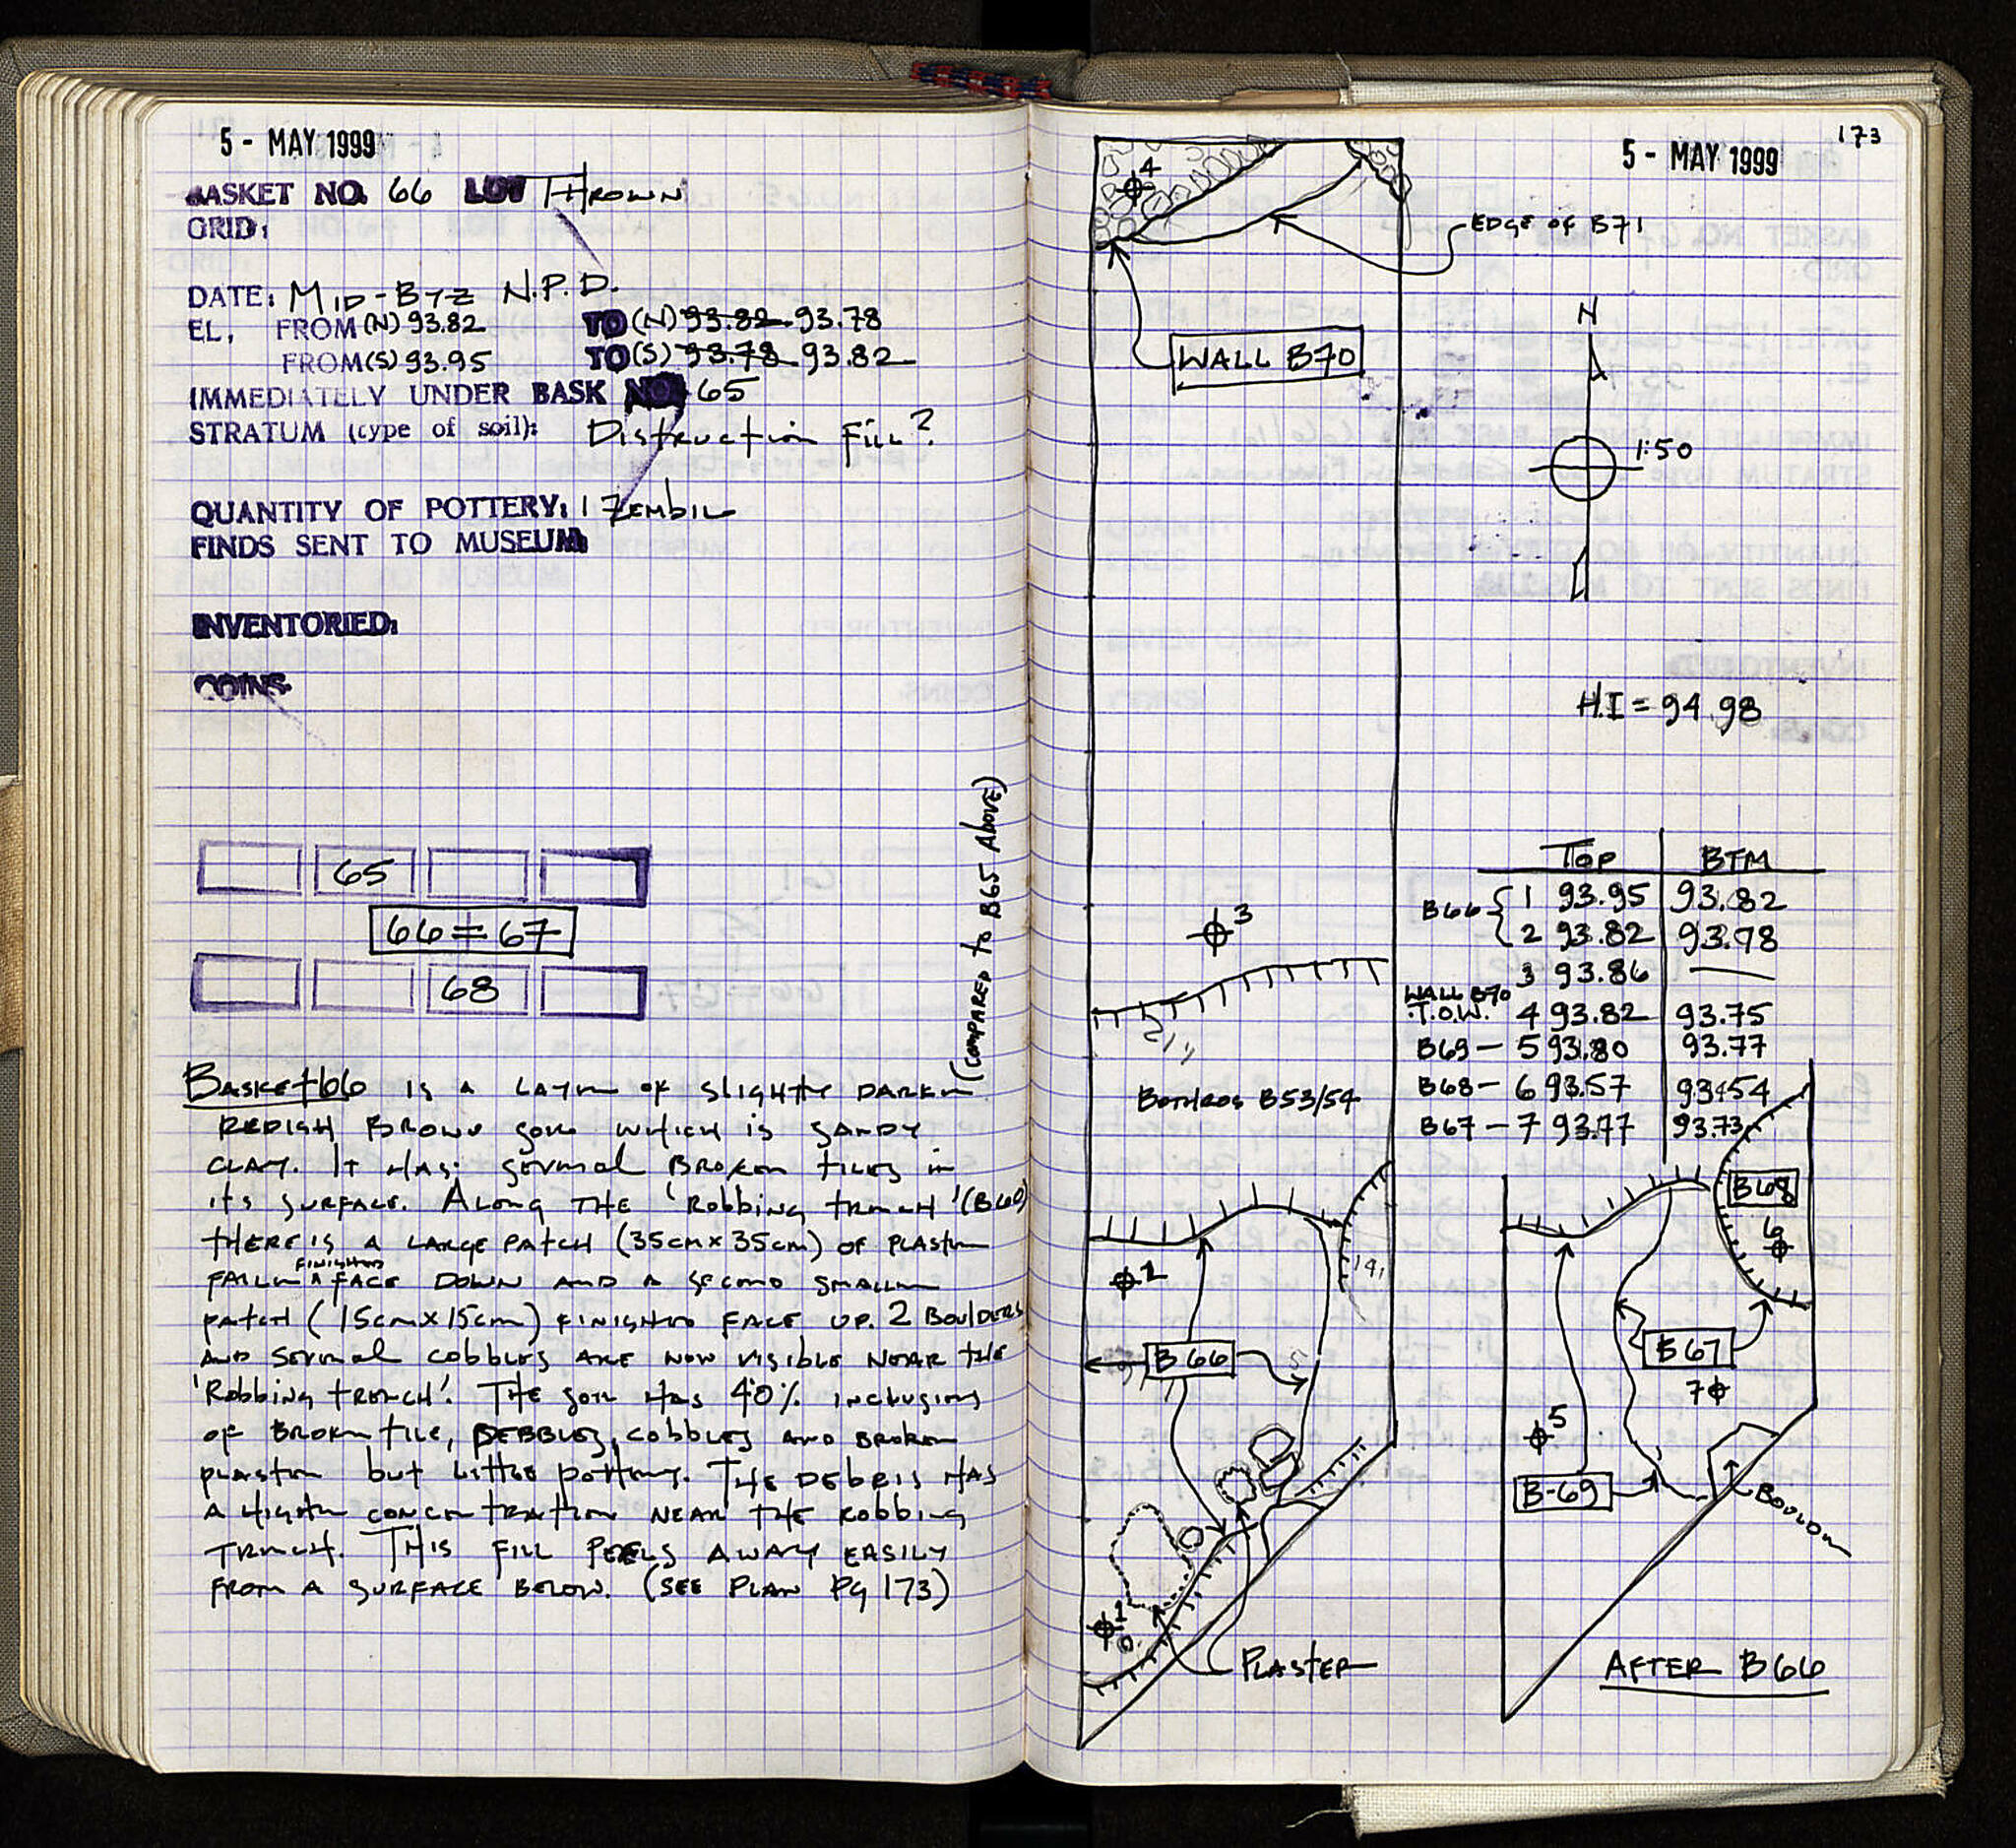 5 - MAY 1999
BASKET NO. 66 LOT THROWN
GRID:
DATE: MID-BYZ N.P.D.
EL. FROM (N) 93.82 TO (N) 93.82 93.78
FROM (S) 93.95 TO (S) 93.78 93.82
IMMEDIATELY UNDER BASK NO 65
STRATUM (type of soil): Distruction Fill?
QUANTITY OF POTTERY: 1 ZEMBIL
FINDS SENT TO MUSEUM
INVENTORIED:
COINS
65
66 = 67
68
(COMPARED to B65 ABOVE)
BASKET 66 IS A LAYER OF SLIGHTLY DARKER
REDISH BROWN SOIL WHICH IS SANDY
CLAY. IT HAS SEVERAL BROKEN TILES IN
ITS SURFACE. ALONG THE 'ROBBING TRENCH' (B60)
THERE IS A LARGE PATCH (35cm x 35cm) OF PLASTER
FALLEN FINISHED FACE DOWN AND A SECOND SMALLER
PATCH (15cm x 15cm) FINISHED FACE UP. 2 BOULDERS
AND SEVERAL COBBLES ARE NOW VISIBLE NEAR THE
'ROBBING TRENCH'. THE SOIL HAS 40% INCLUSIONS
OF BROKEN TILE, PEBBLES, COBBLES AND BROKEN
PLASTER BUT LITTLE POTTERY. THE DEBRIS HAS
A HIGHER CONCENTRATION NEAR THE ROBBING
TRENCH. THIS FILL PEELS AWAY EASILY
FROM A SURFACE BELOW. (SEE PLAN PG 173)
173
5 - MAY 1999
4
EDGE OF B71
WALL B70
N
1:50
H.I = 94.98
TOP BTM
B66 { 1 93.95 93.82
2 93.82 93.78
3 93.86 —
WALL B70
T.O.W. 4 93.82 93.75
B69 - 5 93.80 93.77
B68 - 6 93.57 93.54
B67 - 7 93.77 93.73
3
Bothros B53/54
2
B66
1
PLASTER
B68
6
B67
7
5
B-69
BOULDER
AFTER B66